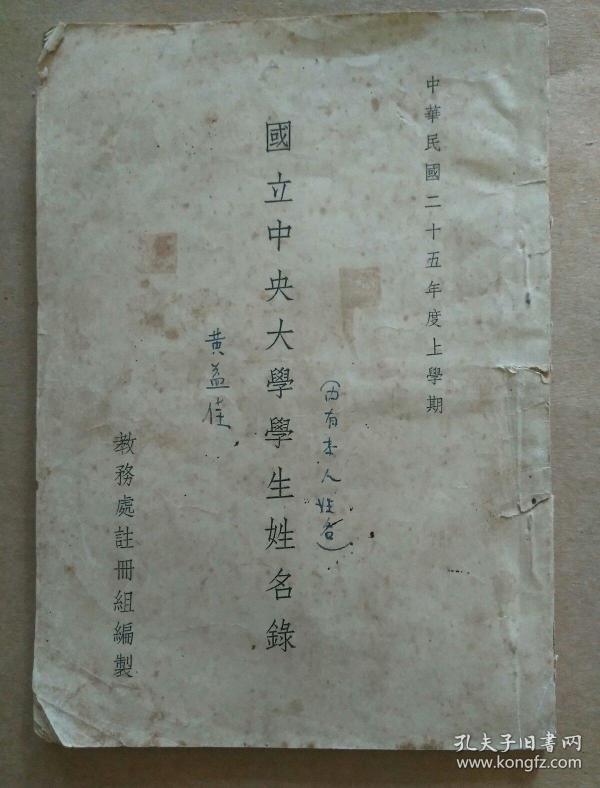 中華民國二十五年度上學期
(內有本人姓名)
國立中央大學學生姓名錄
黃益佳
教務處註冊組編製
孔夫子旧书网
www.kongfz.com